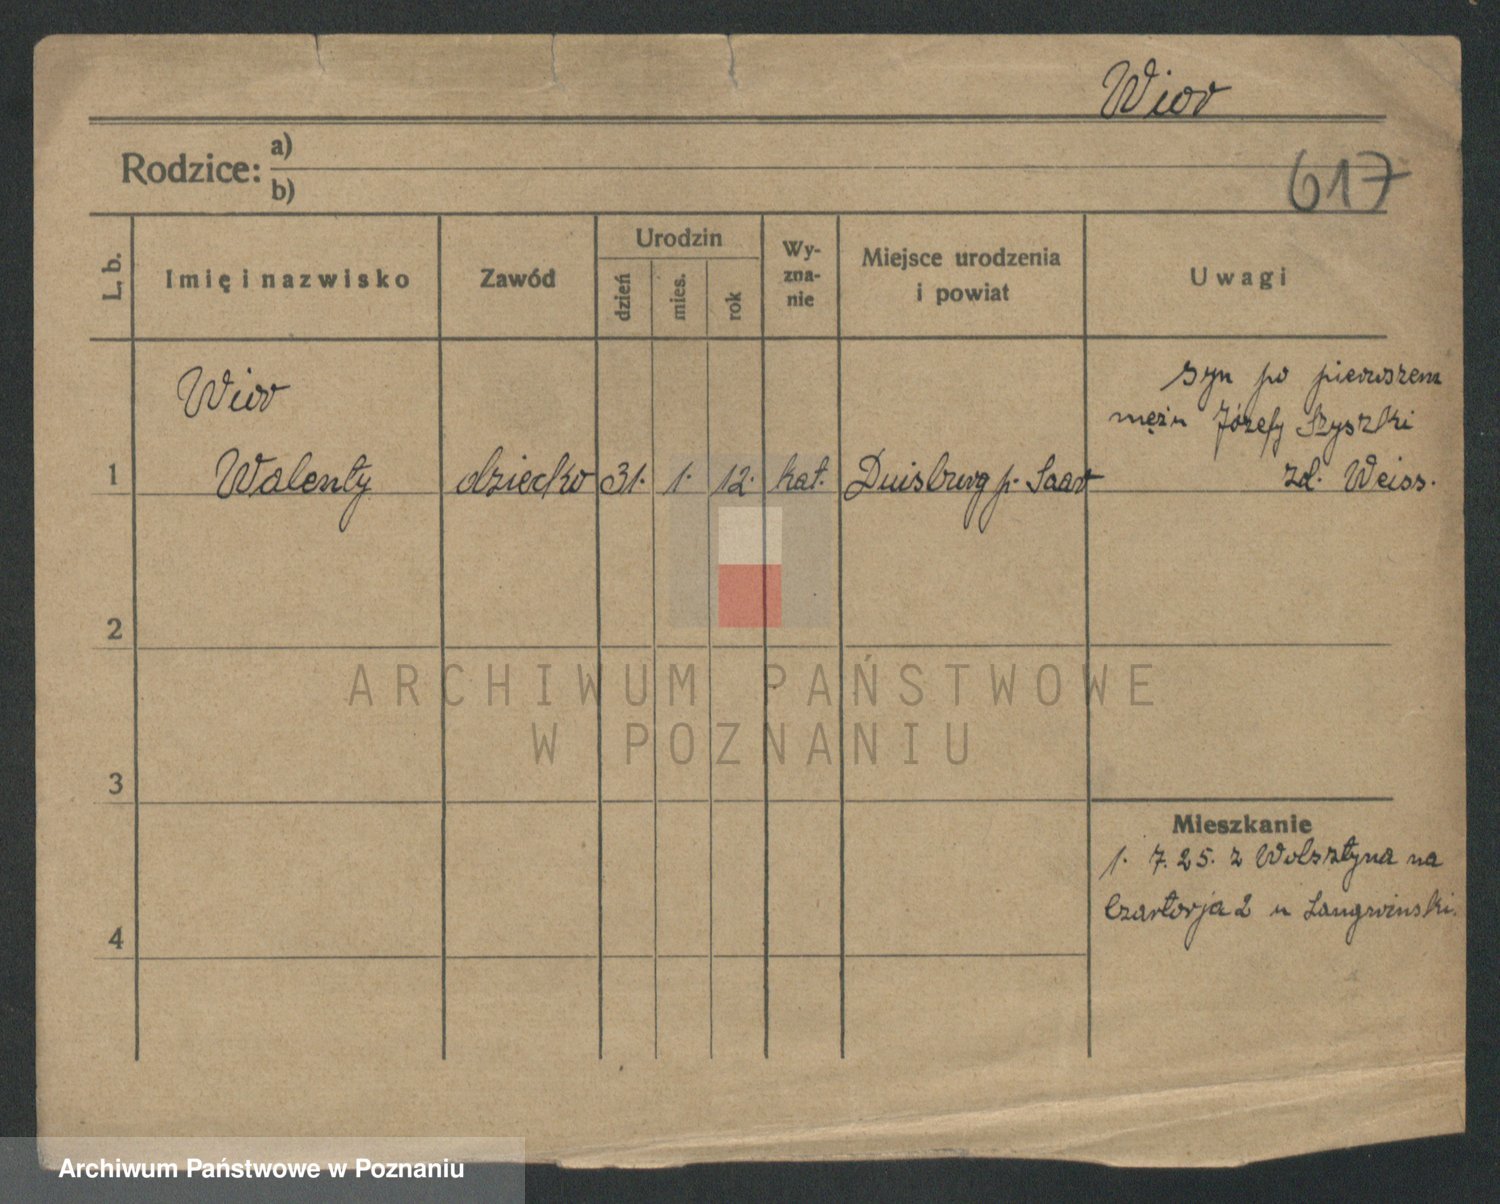 Wior
Rodzice: a)
b)
617
L. b.
Imię i nazwisko
Zawód
Urodzin
dzień
mies.
rok
Wy-
zna-
nie
Miejsce urodzenia
i powiat
Uwagi
Wior
syn po pierwszem
mężu Józefy Szyszki
1 Walenty dziecko 31. 1. 12. kat. Duisburg p. Saar zd. Weiss.
2
ARCHIWUM PAŃSTWOWE
W POZNANIU
3
Mieszkanie
1. 7. 25. z Wolsztyna na
Czartorja 2 u
4
Archiwum Państwowe w Poznaniu